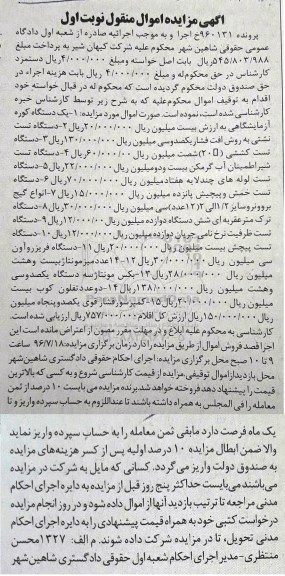 آگهی مزایده اموال منقول نوبت اول
پرونده ۹۶۰۱۳۱ج اجرا و به موجب اجرائیه صادره از شعبه اول دادگاه
عمومی حقوقی شاهین شهر محکوم علیه شرکت کیهان شیر به پرداخت مبلغ
۵۴۵/۸۰۳/۹۸۸ریال بابت اصل خواسته ومبلغ ۴/۰۰۰/۰۰۰ ریال دستمزد
کارشناس در حق محکوم‌له و مبلغ ۴/۰۰۰/۰۰۰ ریال بابت هزینه اجراء در
حق صندوق دولت محکوم گردیده است که محکوم له در قبال خواسته خود
اقدام به توقیف اموال محکوم‌علیه که به شرح زیر توسط کارشناس خبره
کارشناسی شده‌است،نموده است. صورت اموال مورد مزایده: ۱-یک دستگاه کوره
آزمایشگاهی به ارزش بیست میلیون ریال۲۰/۰۰۰/۰۰۰ریال۲-دستگاه تست
نشتی به روش افت فشاریکصدوسی میلیون ریال۱۳۰/۰۰۰/۰۰۰ریال۳-دستگاه
تست کششی (۲۰) شصت میلیون ریال۶۰/۰۰۰/۰۰۰ریال۴-دستگاه تست
شیراطمینان آب گرمکن بیست ودومیلیون ریال۲۲/۰۰۰/۰۰۰ریال۵-دستگاه
تست لوله های چندلایه هفتادمیلیون ریال۷۰/۰۰۰/۰۰۰ریال۶-دستگاه
تست خمش وپیچش پانزده میلیون ریال۱۵/۰۰۰/۰۰۰ریال۷-انواع گیج
برووبرو سایز۱/۲الی۲(۱۲عدد)سی میلیون ریال۳۰/۰۰۰/۰۰۰ریال۸-دستگاه
ترک مترعقربه ای شش دستگاه دوازده میلیون ریال۱۲/۰۰۰/۰۰۰ریال۹-دستگاه
تست ظرفیت نرخ نامی جریان دوازده میلیون ریال۱۲/۰۰۰/۰۰۰ریال۱۰-دستگاه
تست پیچش بیست میلیون ریال۲۰/۰۰۰/۰۰۰ریال۱۱-دستگاه فریزر و اون
سی میلیون ریال۳۰/۰۰۰/۰۰۰ریال۱۲-۱۴عددمیزمونتاژبیست وهشت
میلیون ریال۲۸/۰۰۰/۰۰۰ریال۱۳-یکس مونتاژسه دستگاه یکصدوسی
وهشت میلیون ریال۱۳۸/۰۰۰/۰۰۰ریال۱۴-دوعددتفلون کوب بیست
میلیون ریال۲۰/۰۰۰/۰۰۰ریال۱۵-کمپرسورفشار قوی یکصدوپنجاه میلیون
ریال۱۵۰/۰۰۰/۰۰۰ریال ارزش کل اقلام:۷۵۷/۰۰۰/۰۰۰ریال ارزیابی شده است.
کارشناسی به محکوم علیه ابلاغ و در مهلت مقرر مصون از اعتراض مانده است این
اجرا قصد فروش اموال از طریق مزایده را دارد.زمان برگزاری مزایده:۹۶/۷/۱۸ ساعت
۹ تا ۱۰ صبح محل برگزاری مزایده: اجرای احکام حقوقی دادگستری شاهین‌شهر
محل بازدیداز اموال توقیفی، مزایده از قیمت کارشناسی شروع و به کسی که بالاترین
قیمت را پیشنهاد دهدفروخته خواهد شد.برنده مزایده می بایست ۱۰ درصد از ثمن
معامله را فی المجلس به همراه داشته باشند تا عنداللزوم به حساب سپرده واریز و تا
یک ماه فرصت دارد مابقی ثمن معامله را به حساب سپرده واریز نماید
والا ضمن ابطال مزایده ۱۰ درصد اولیه پس از کسر هزینه‌های مزایده
به صندوق دولت واریز می گردد. کسانی که مایل به شرکت در مزایده
می باشند می بایست حداکثر پنج روز قبل از مزایده به دایره اجرای احکام
مدنی مراجعه تا ترتیب بازدید آنها از اموال داده شود و در روز انجام مزایده
درخواست کتبی خود به همراه قیمت پیشنهادی را به دایره اجرای احکام
مدنی تحویل، تا در مزایده شرکت داده شوند. م الف: ۱۳۲۷محسن
منتظری-مدیر اجرای احکام شعبه اول حقوقی دادگستری شاهین شهر